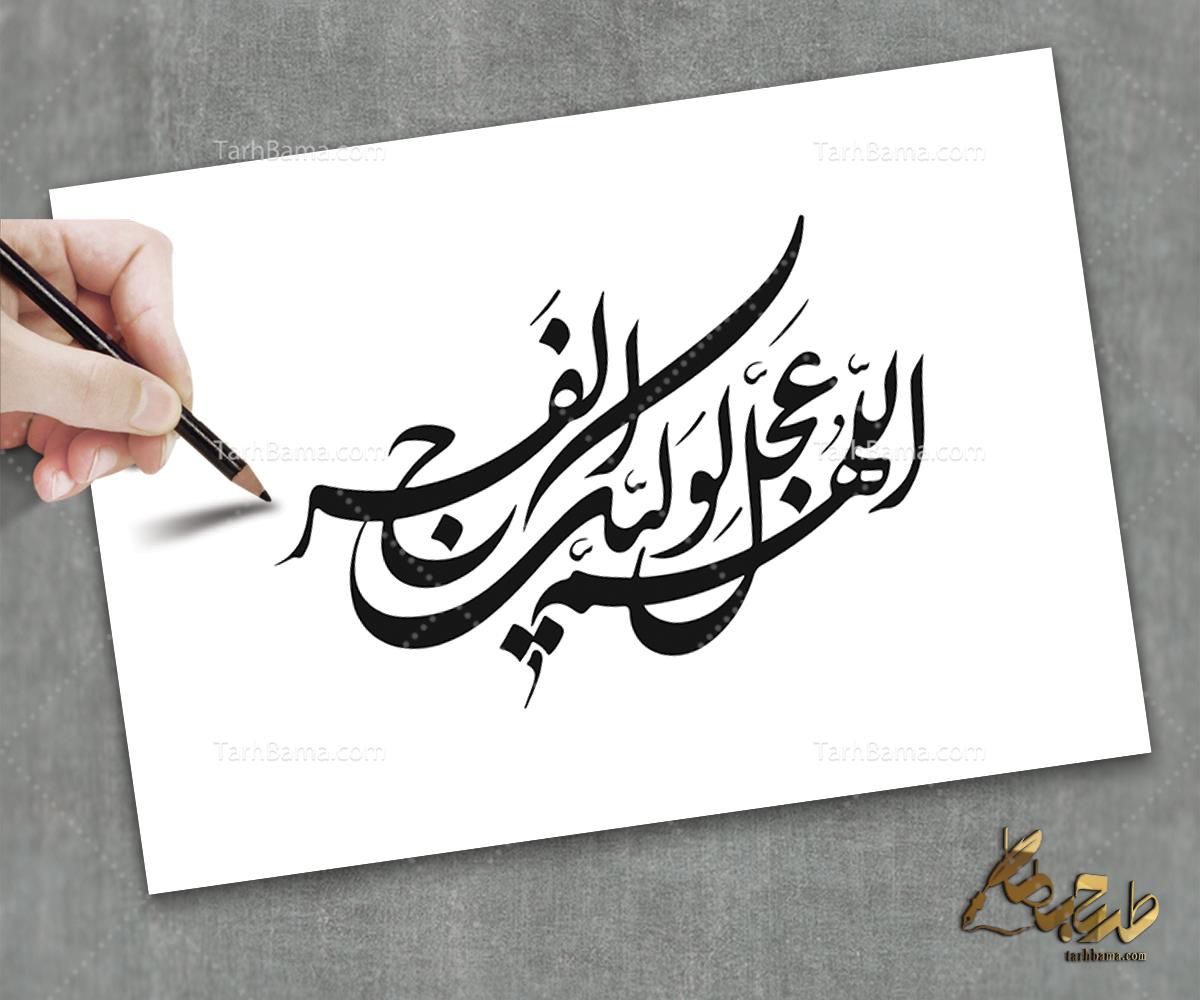 TarhBama.com TarhBama.com
اللهم عجل لولیک الفرج
TarhBama.com TarhBama.com
TarhBama.com TarhBama.com
طرح با ما
tarhbama.com